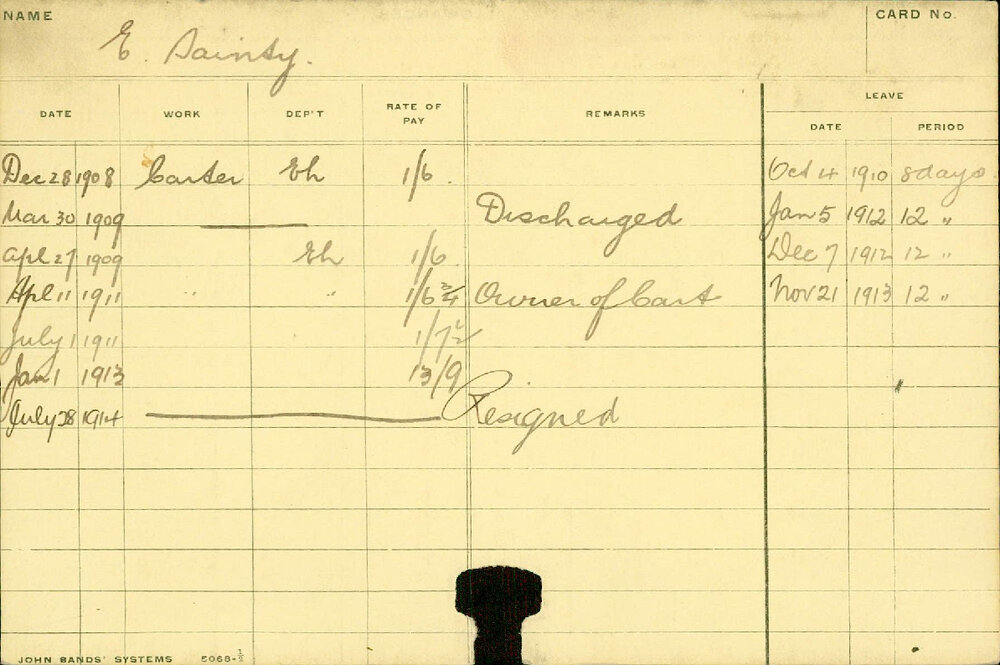 NAME CARD No.
E. Dainty.
LEAVE
DATE WORK DEP'T RATE OF PAY REMARKS DATE PERIOD
Dec 28 1908 Carter Eh 1/6. Oct 4 1910 8 days
Mar 30 1909 Discharged Jan 5 1912 12 "
Apl 27 1909 Eh 1/6 Dec 7 1912 12 "
Apl 11 1911 " " 1/6 3/4 Owner of Cart Nov 21 1913 12 "
July 1 1911 1/7 1/2
Jan 1 1913 13/9
July 28 1914 Resigned
JOHN SANDS' SYSTEMS 5068-